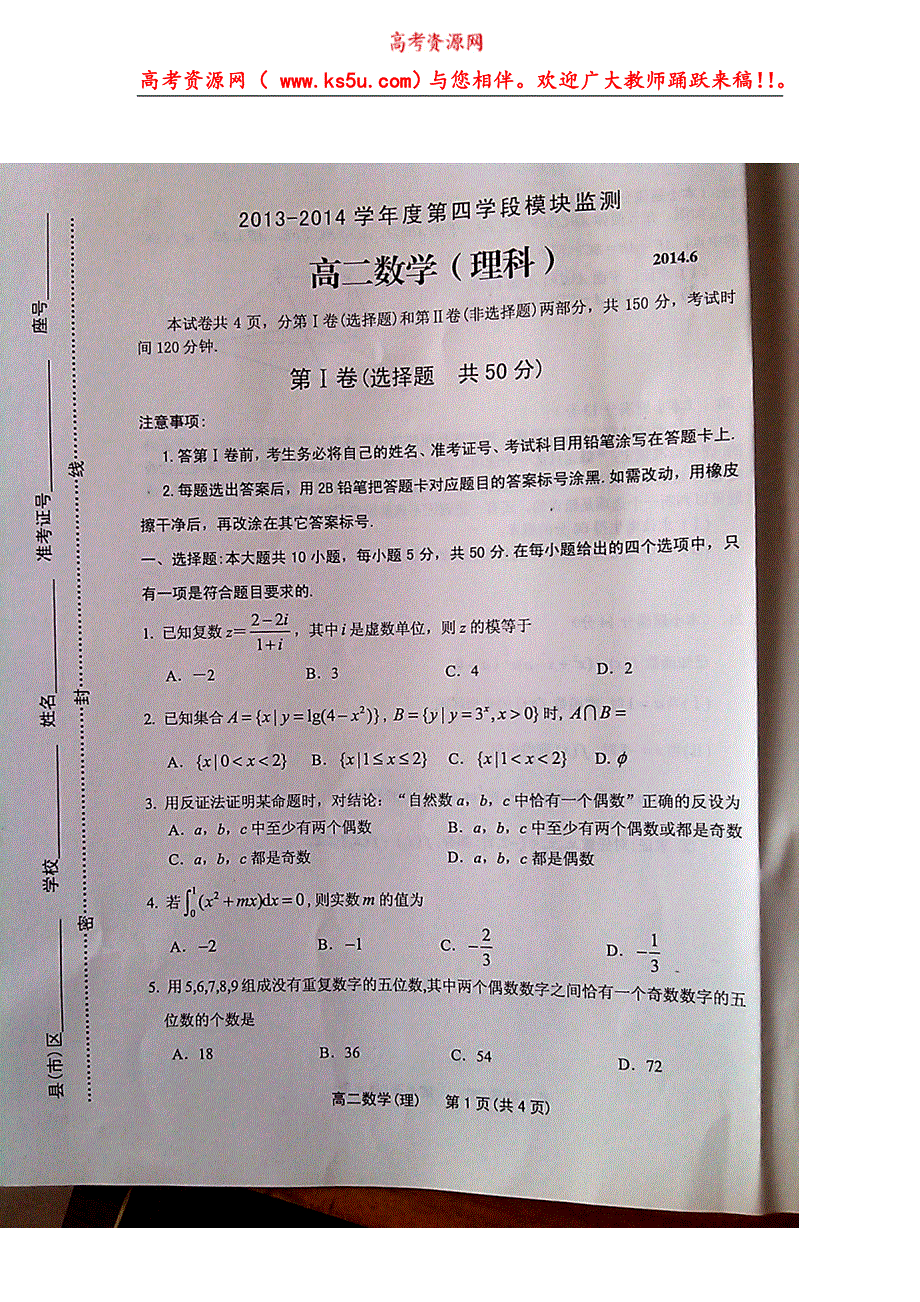 高考资源网
高考资源网（ www.ks5u.com）与您相伴。欢迎广大教师踊跃来稿！！。
2013-2014 学年度第四学段模块监测
高二数学（理科）
2014.6
本试卷共 4 页，分第Ⅰ卷(选择题)和第Ⅱ卷(非选择题)两部分，共 150 分，考试时
间 120 分钟.
第Ⅰ卷(选择题 共 50 分)
注意事项：
1.答第Ⅰ卷前，考生务必将自己的姓名、准考证号、考试科目用铅笔涂写在答题卡上.
2.每题选出答案后，用 2B 铅笔把答题卡对应题目的答案标号涂黑.如需改动，用橡皮
擦干净后，再改涂在其它答案标号.
一、选择题:本大题共 10 小题，每小题 5 分，共 50 分.在每小题给出的四个选项中，只
有一项是符合题目要求的.
1. 已知复数 z=\frac{2-2i}{1+i}，其中 i 是虚数单位，则 z 的模等于
A．-2 B．3 C．4 D．2
2. 已知集合 A={x|y=lg(4-x²)}，B={y|y=3ˣ,x>0}时，A∩B=
A．{x|0<x<2} B．{x|1≤x≤2} C．{x|1<x<2} D．ϕ
3. 用反证法证明某命题时，对结论：“自然数 a，b，c 中恰有一个偶数”正确的反设为
A．a，b，c 中至少有两个偶数 B．a，b，c 中至少有两个偶数或都是奇数
C．a，b，c 都是奇数 D．a，b，c 都是偶数
4. 若∫₀¹(x²+mx)dx=0，则实数 m 的值为
A．-2 B．-1 C．-\frac{2}{3} D．-\frac{1}{3}
5. 用 5,6,7,8,9 组成没有重复数字的五位数,其中两个偶数数字之间恰有一个奇数数字的五
位数的个数是
A．18 B．36 C．54 D．72
高二数学(理) 第 1 页(共 4 页)
县(市)区 学校 姓名 准考证号 座号
密 封 线